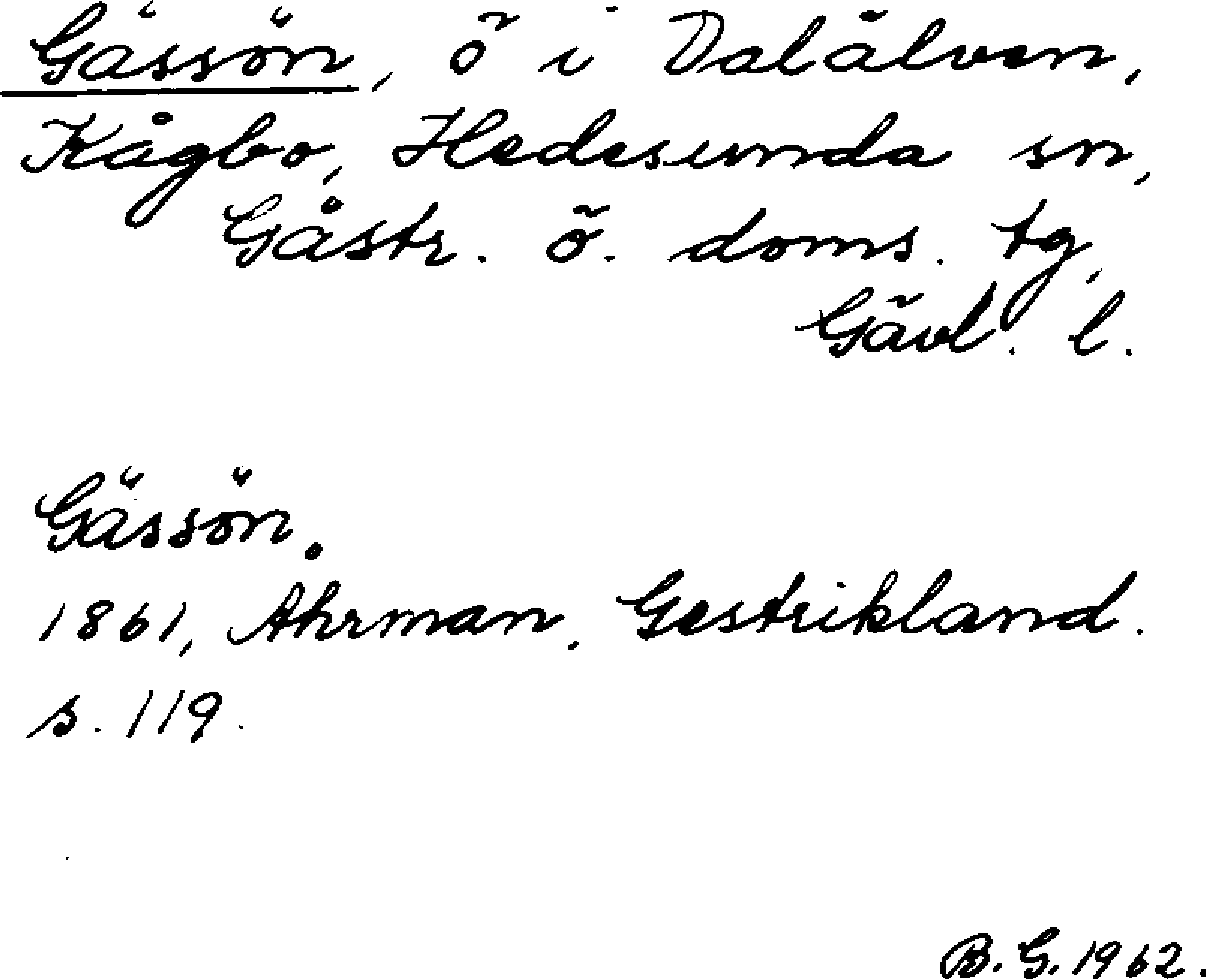 Gässön, ö i Dalälven,
Kågbo, Hedesunda sn,
Gästr. ö. doms. tg,
Gävl. l.
Gässön.
1861, Ahrman, Gestrikland.
s. 119.
B. G. 1962.